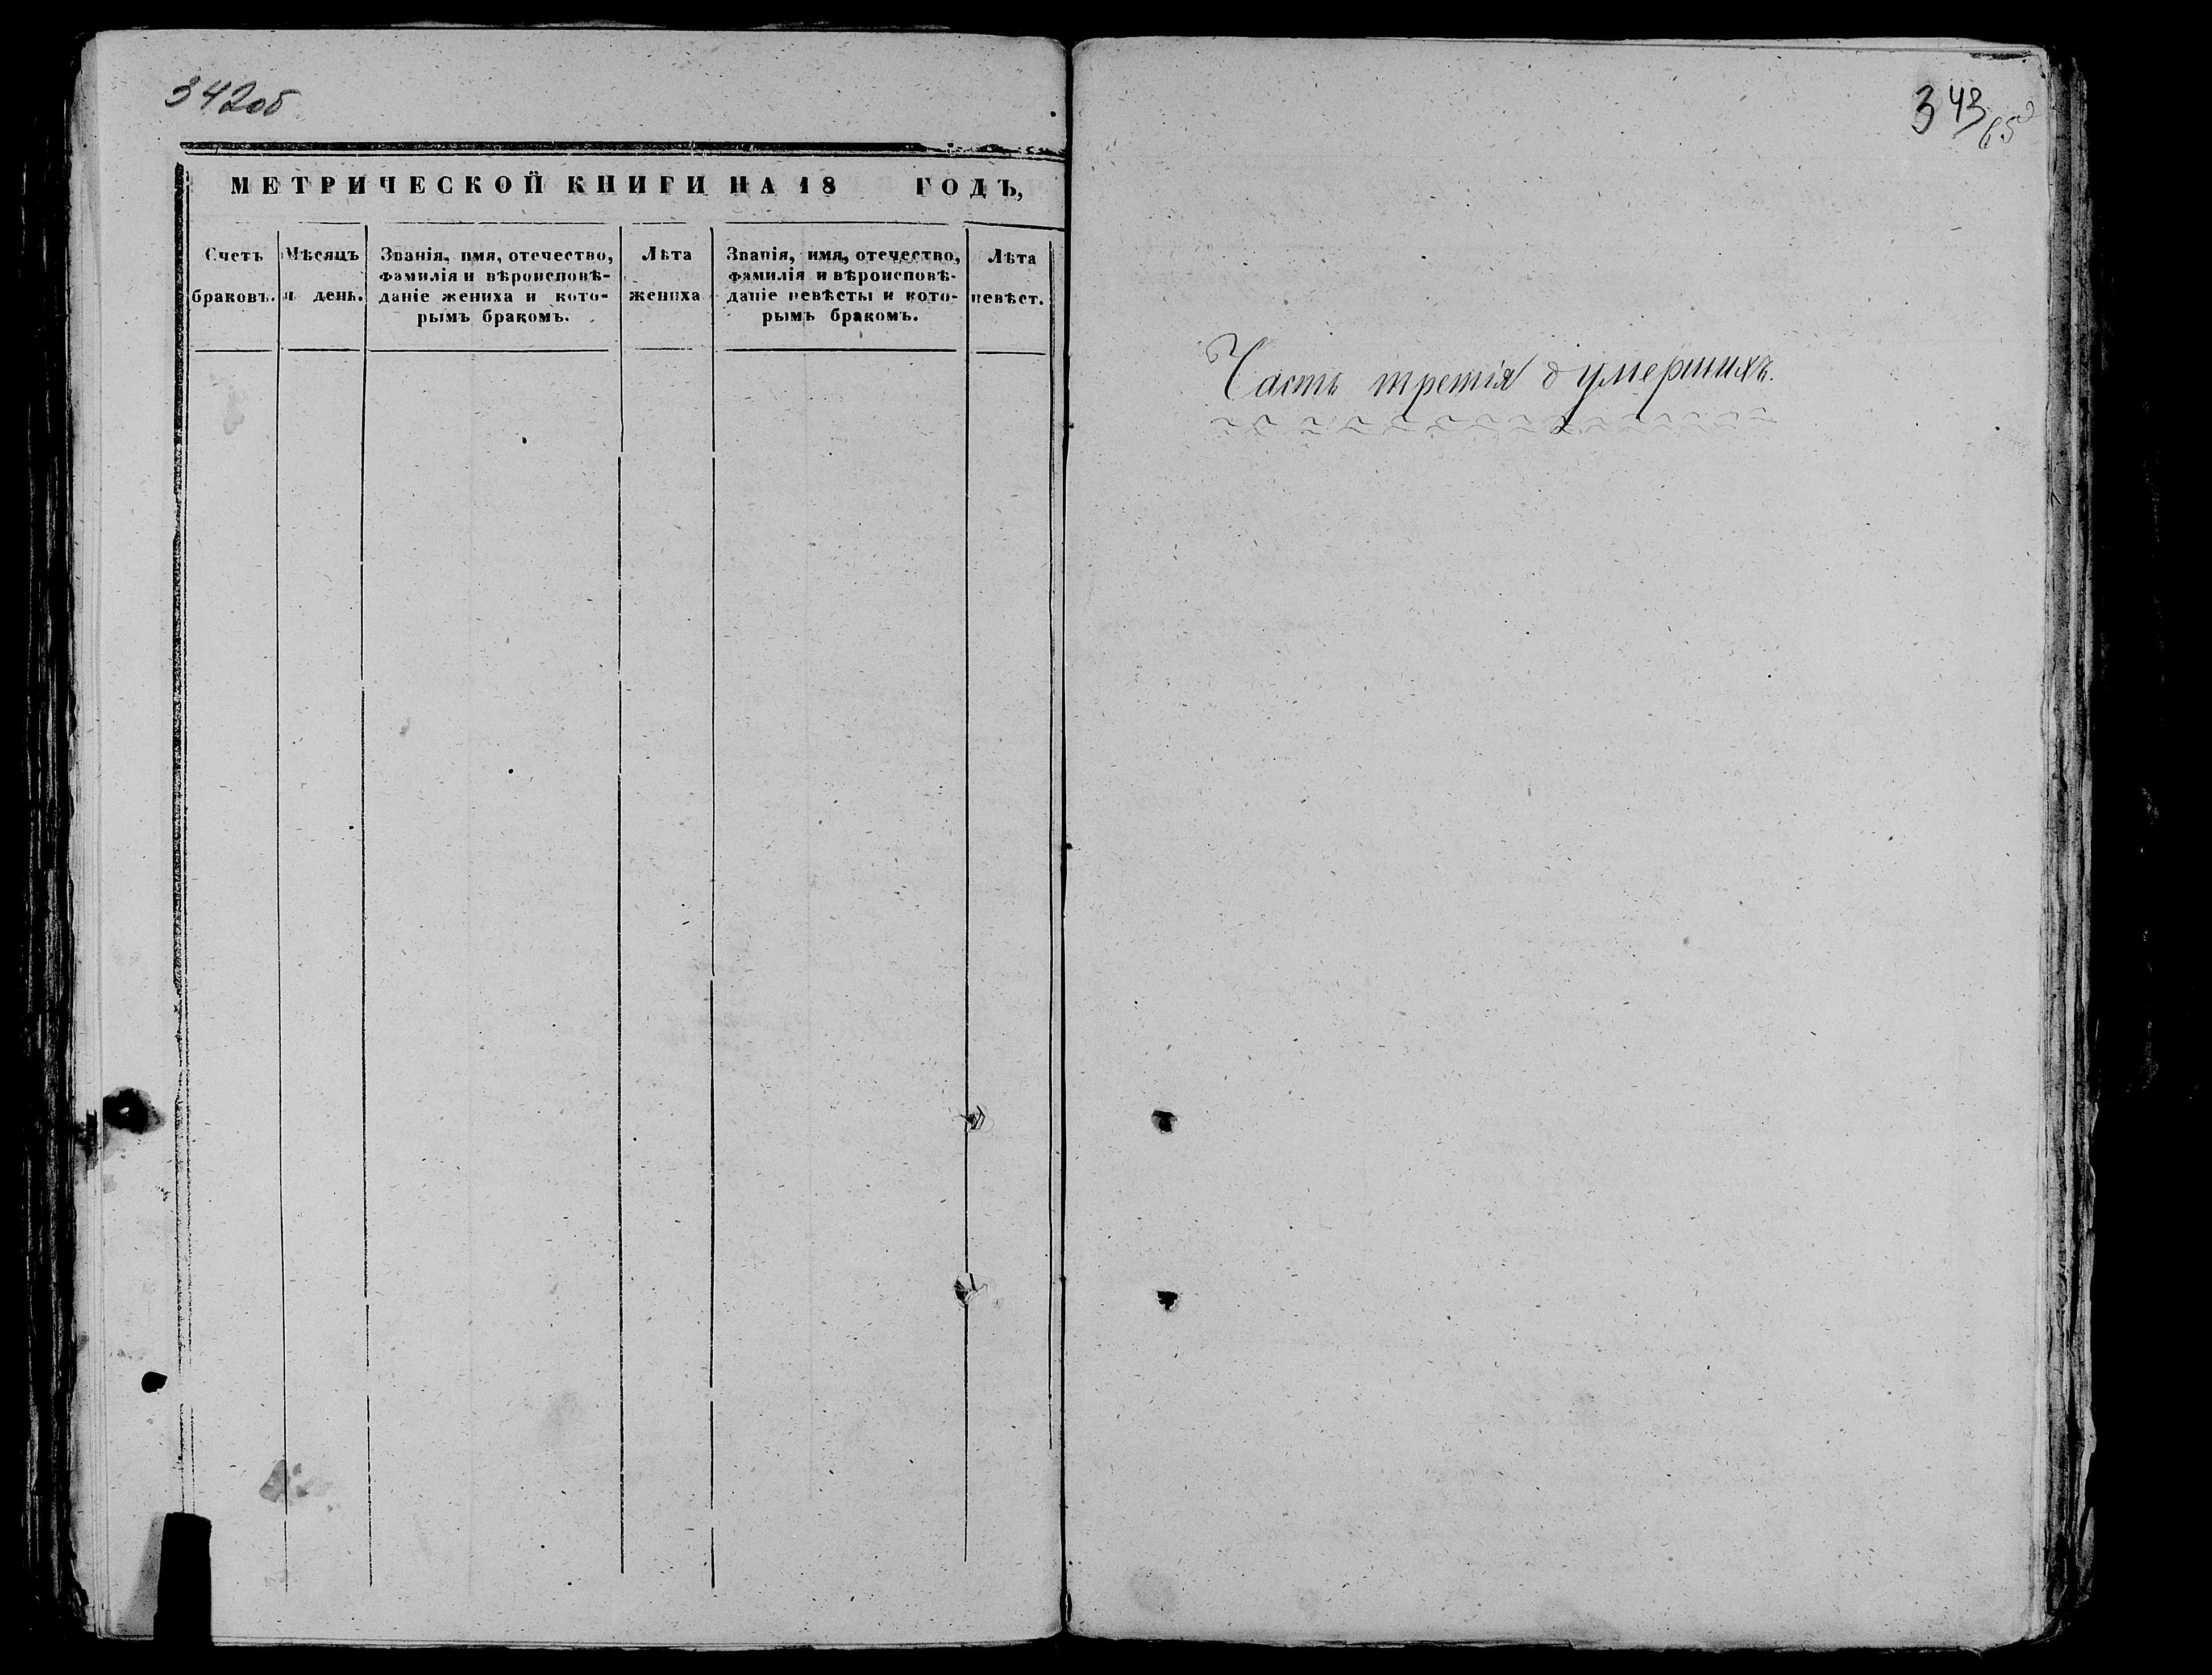 342об
МЕТРИЧЕСКОЙ КНИГИ НА 18 ГОДЪ,
Счетъ браковъ.
Мѣсяцъ и день.
Званія, имя, отечество,
фамилія и вѣроисповѣ-
даніе жениха и кото-
рымъ бракомъ.
Лѣта
жениха
Званія, имя, отечество,
фамилія и вѣроисповѣ-
даніе невѣсты и кото-
рымъ бракомъ.
Лѣта
невѣст.
343
65
Часть третія о умершихъ.